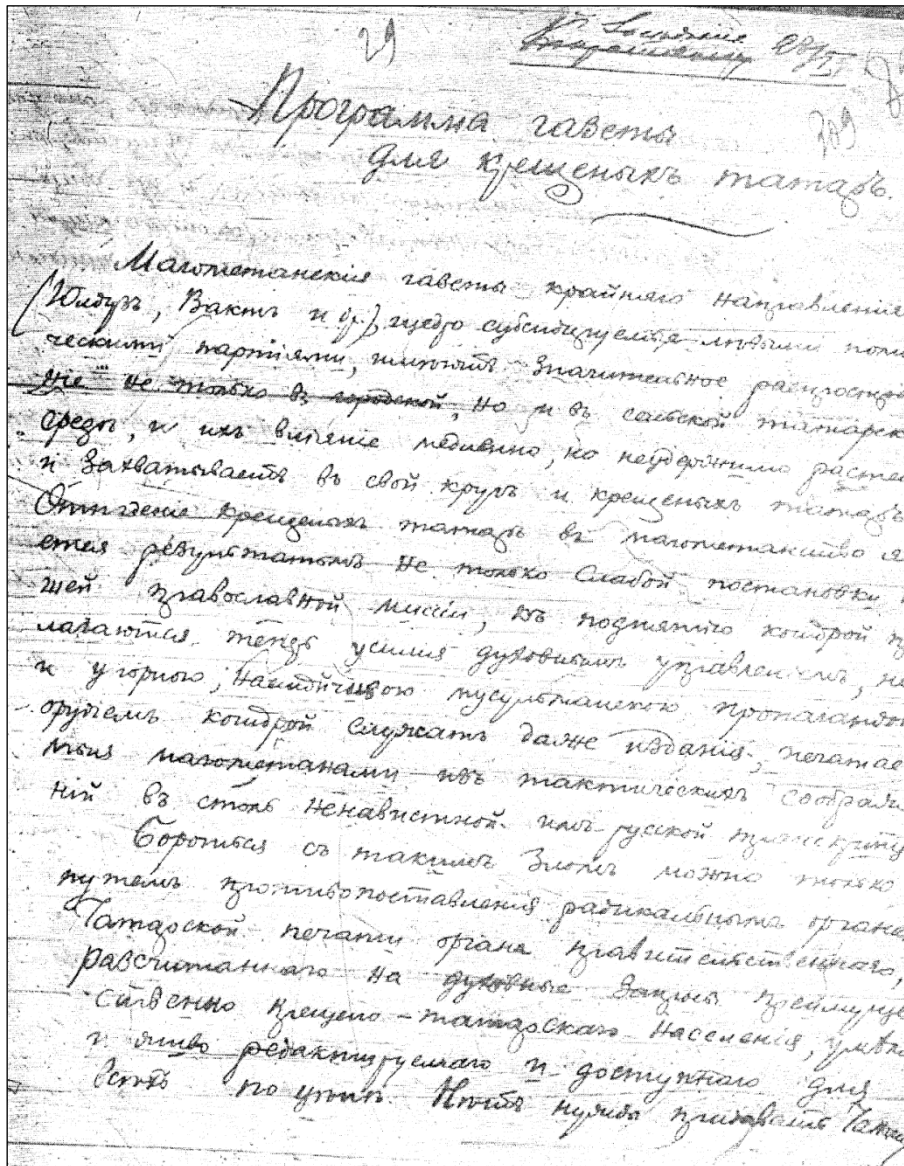 29
309
Программа газеты
для крещеныхъ татаръ.
Магометанскія газеты крайняго направленія
(Юлдузъ, Вактъ и др.), щедро субсидируемыя лѣвыми поли
ческими партіями, имѣютъ значительное распростра
ніе не только въ городской, но и въ сельской татарск
средѣ, и ихъ вліяніе медленно, но неудержимо расте
и захватываетъ въ свой кругъ и крещеныхъ татаръ.
Отпаденіе крещеныхъ татаръ въ магометанство я
ется результатомъ не только слабой постановки
шей православной миссіи, къ поднятію которой пр
лагаются теперь усилія духовнымъ управленіемъ, но
и упорною, настойчивою мусульманскою пропагандою
орудіемъ которой служатъ даже изданія, печатае
мыя магометанами изъ тактическихъ соображе
ній въ столь ненавистной имъ русской транскрипц
Бороться съ такимъ зломъ можно только
путемъ противопоставленія радикальнымъ органа
татарской печати органа правительственнаго,
разсчитаннаго на духовные запросы преимуще
ственно крещено-татарскаго населенія, умѣло
и живо редактируемаго и доступнаго для
всѣхъ по цѣнѣ. Нѣтъ нужды придавать